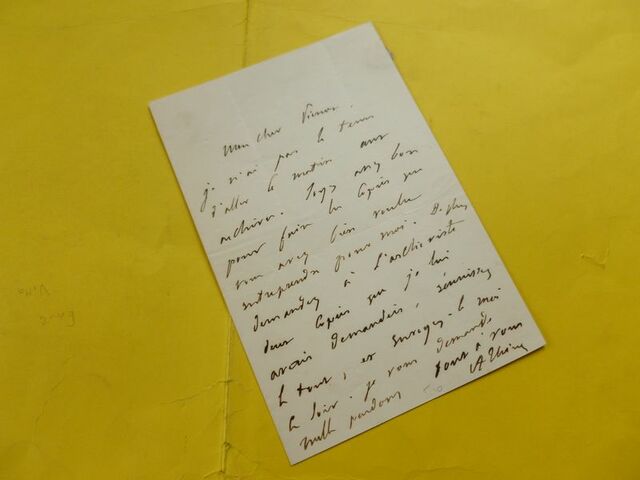 Mon cher
je n'ai pas le tems
d'aller le matin aux
archives. Soyez assez bon
pour faire les copies que
vous avez bien voulu
entreprendre pour moi. De plus
demandez à l'archiviste
deux copies que je lui
avais demandées, réunissez
le tout, et envoyez-le moi
le soir. je vous demande
mille pardons tout à vous
A Thiers